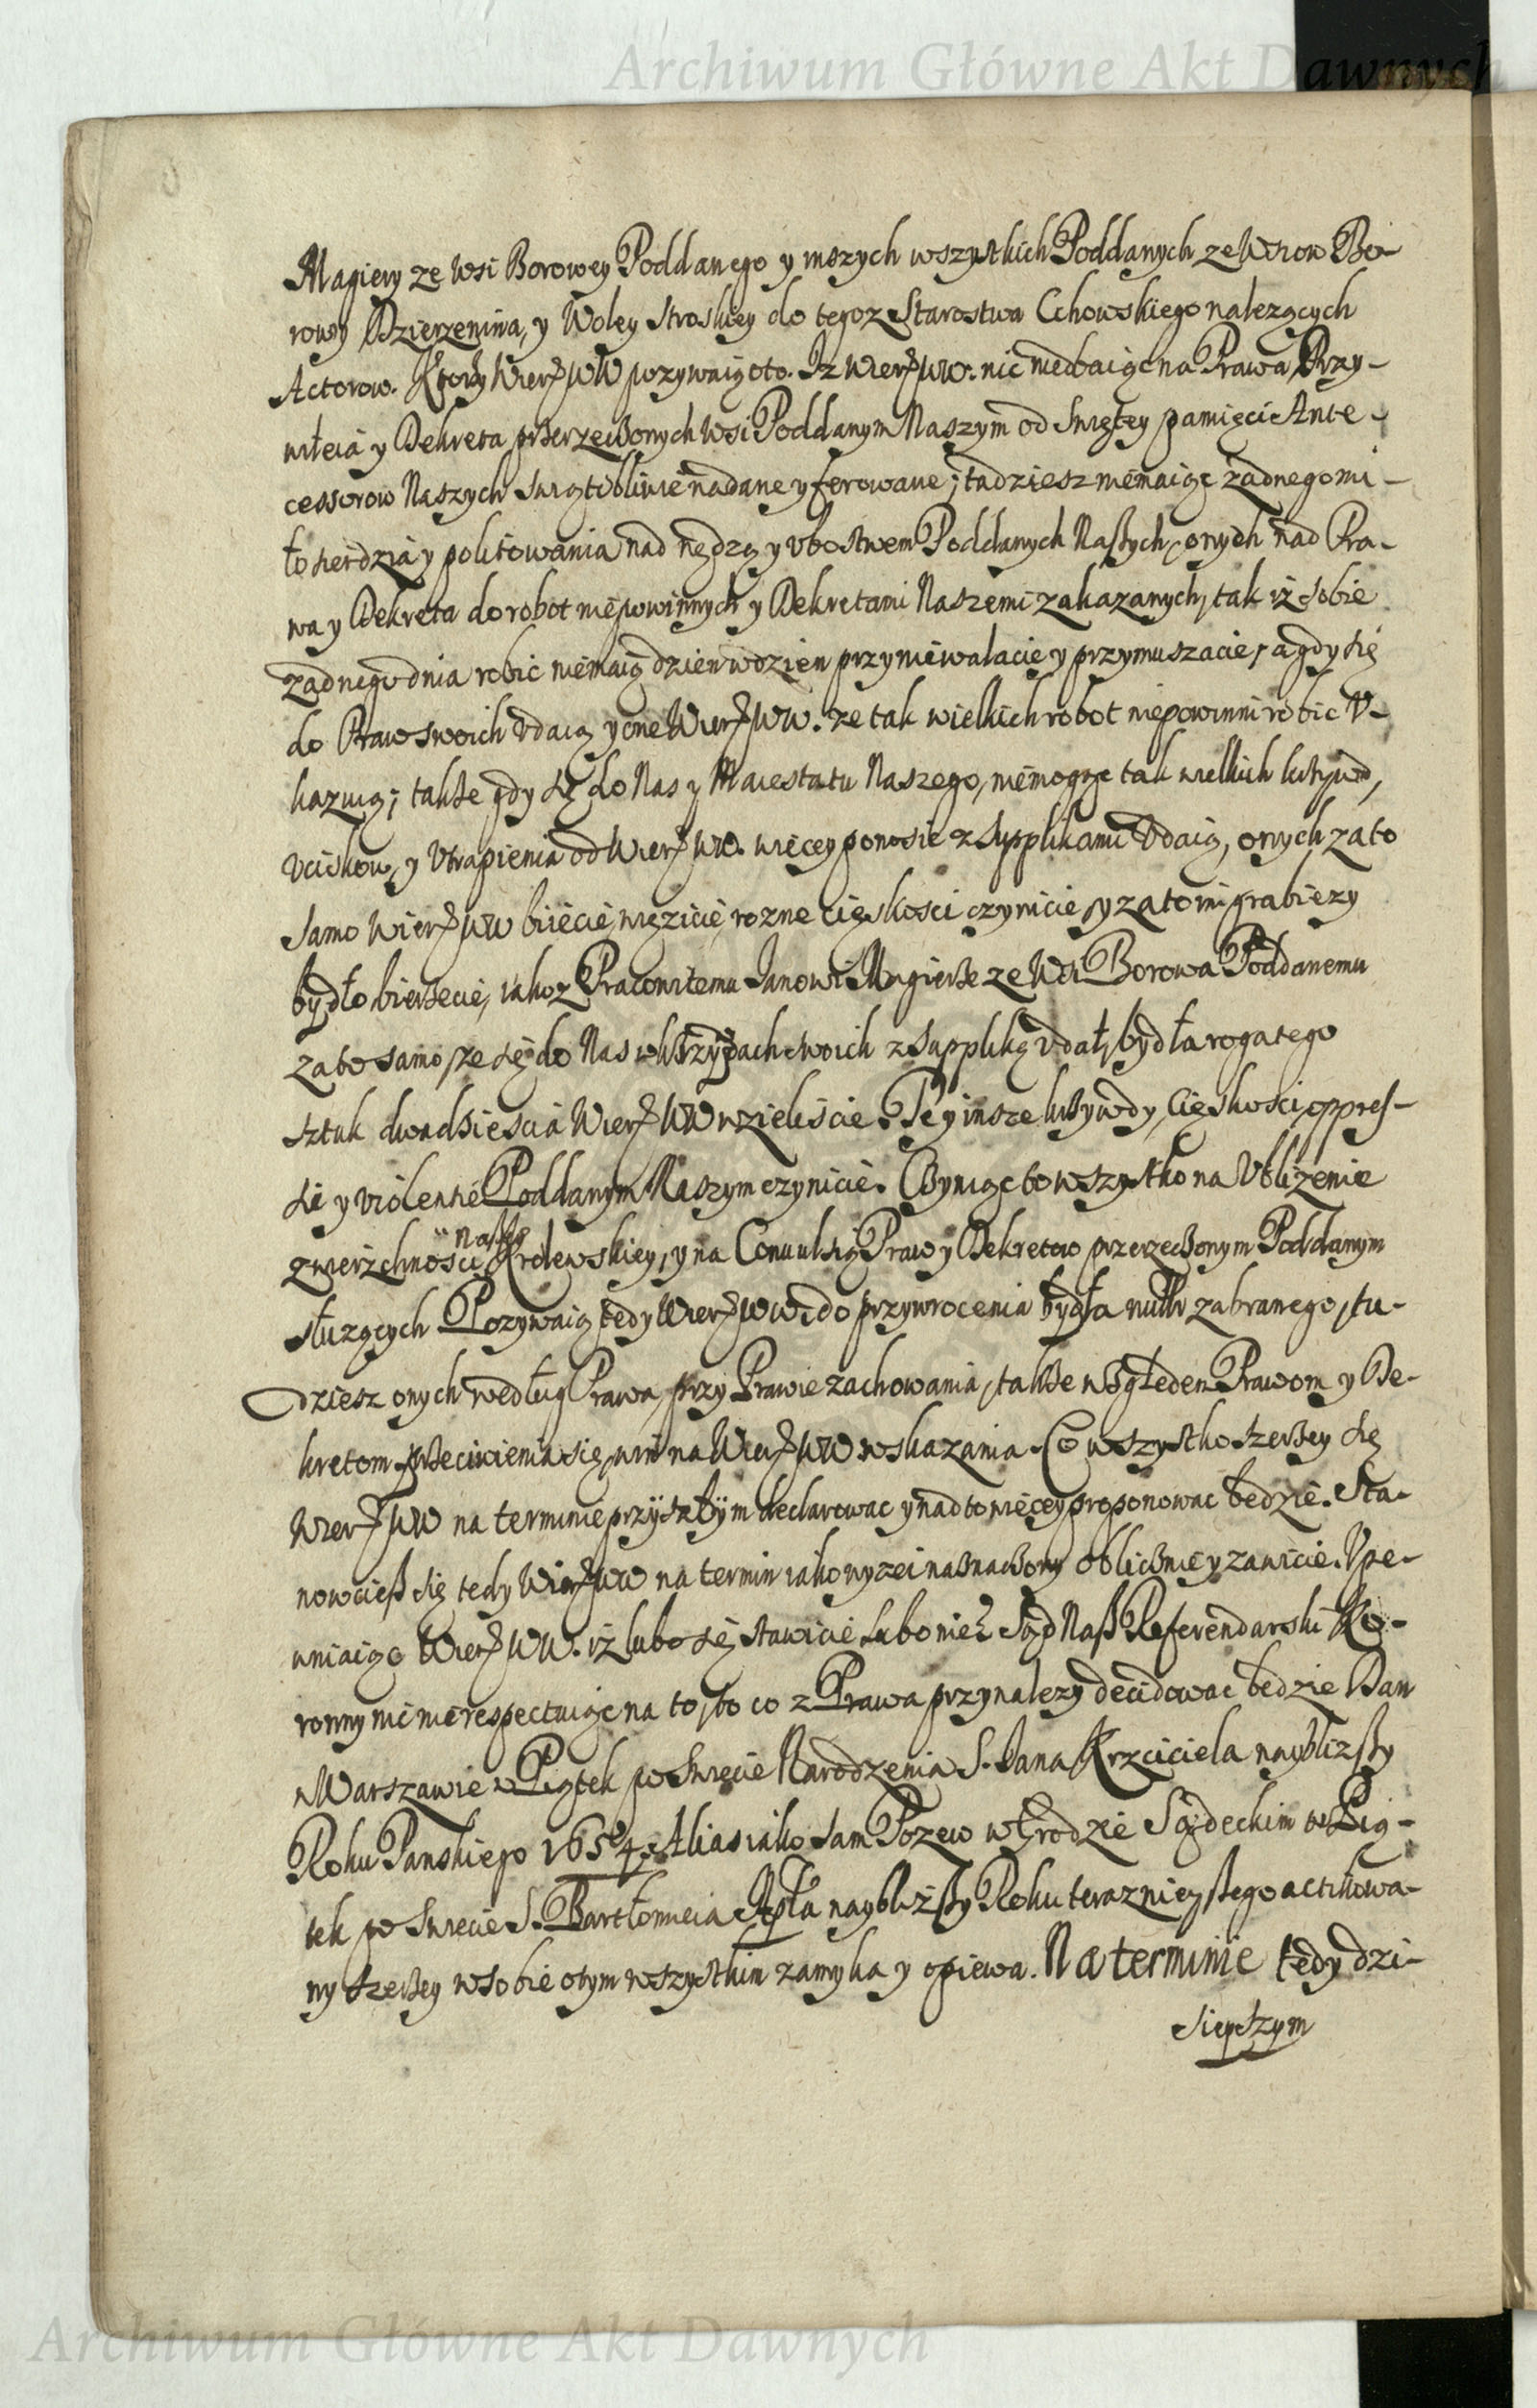 Archiwum Główne Akt Dawnych
Magiery ze wsi Borowey Poddanego y inszych wszystkich Poddanych ze Wsiow Bo-
rowy Dzierzenina, y Woley Stroskiey do tegoz Starostwa Cchowskiego nalezących
Actorow. Ktorzy Wierz WW pozywaią oto. Iz Wierz WW. nic niedbaiąc na Prawa Przy-
wileia y Dekreta przerzeczonych Wsi Poddanym Naszym od Swiętey pamięci Ante-
cessorow Naszych swiątobliwie nadane y ferowane; tudziesz niemaiąc zadnego mi-
łosierdzia y politowania nad nędzą y vbostwem Poddanych Naszych, onych nad Pra-
wa y Dekreta do robot niepowinnych y Dekretami Naszemi zakazanych, tak iż sobie
zadnego dnia robic niemaią dzien wdzien przyniewalacie y przymuszacie, a gdy się
do Praw swoich vdaią y one Wierz WW. ze tak wielkich robot niepowinni robic V-
kazuią; takze gdy się do Nas y Maiestatu Naszego, niemogąc tak wielkich krzywd,
vciskow, y Vtrapienia od Wierz WW. więcey ponosic z Supplikami Vdaią, onych za to
samo Wierz WW biiecie, więzicie, rozne cięskosci czynicie, y zatomi grabiezy
bydło bierzecie, iakoz Pracowitemu Janowi Magierze ze Wsi Borowa Poddanemu
za to samo, ze się do Nas wkrzywdach swoich z Suppliką vdał, bydła rogatego
sztuk dwadziescia Wierz WW wzieliscie. Te y insze krzywdy, Cięskosci, oppres-
sie y violentie Poddanym Naszym czynicie. Czyniąc to wszystko na Vbliżenie
zwierzchnosci Naszey Krolewskiey, y na Convulsią Praw y Dekretow przerzeczonym Poddanym
słuzących Pozywaią tedy Wierz WW. do przywrocenia bydła zabranego, tu-
dziesz onych według Prawa, przy Prawie zachowania, takze względem Prawom y De-
kretom przeciwienia się, win na Wierz WW wskazania. Co wszystko szerzey się
Wierz WW na terminie przyszłym declarowac y nadto więcey proponowac będzie. Sta-
nowcieß się tedy Wierz WW na termin iako wyzei naznaczony obliczniey zawicie. Vpe-
wniaiąc Wierz WW. iż lubo się stawicie lubo nie, Sąd Naß Referendarski Ko-
ronny nic nie respectuiąc na to, to co z Prawa przynalezy decidowac będzie Dan
w Warszawie w Piątek po Swięcie Narodzenia S. Jana Krzciciela naybliższy
Roku Panskiego 1654. Alias iako sam Pozew w Grodzie Sądeckim w Pią-
tek po Swięcie S. Bartłomieia Apła naybliższy Roku teraznieyszego actikowa-
ny szerzey wsobie otym wszystkim zamyka y opiewa. Na terminie tedy dzi-
sieyszym
Archiwum Główne Akt Dawnych